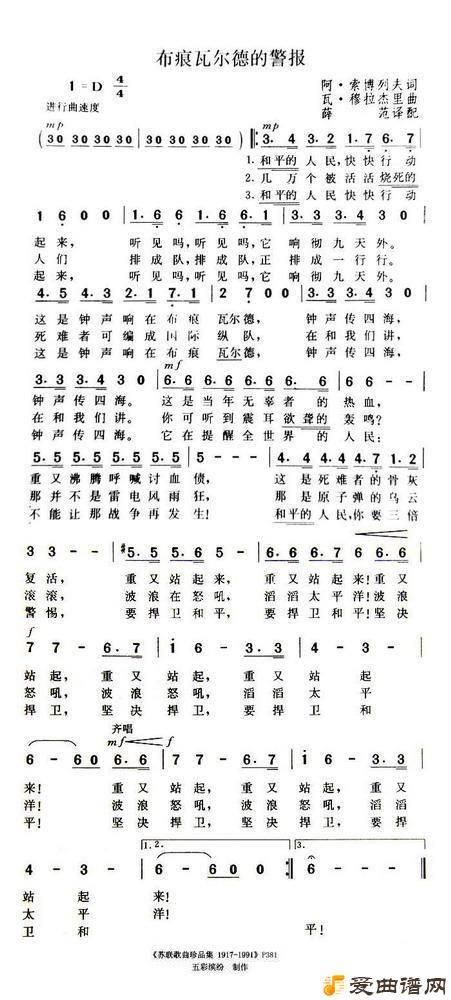 布痕瓦尔德的警报
1=D 4/4
阿·索博列夫词
进行曲速度
瓦·穆拉杰里曲
薛 范译配
mp
mp
(30 30 30 30 | 30 30 30 30) ‖: 3. 4 3. 2 1. 7 6. 7 |
1.和平的 人民,快快行动
2.几万个被活活烧死的
3.和平的 人民快快行动
1 6 0 0 | 1. 6 6 1. 6 6. 1 | 3. 3 4. 3 3 0 |
起来, 听见吗,听见吗,它 响彻九天外。
人们 排成队,排成队,正 排成一行行。
起来, 听见吗,听见吗,它 响彻九天外。
4. 5 4. 3 2. 1 7. 1 | 2 7 0 0 | 3. 3 3. 4 3 0 |
这是钟声响在布痕 瓦尔德, 钟声传四海,
死难者可编成国际 纵队, 在和我们讲,
这是钟声响在布痕 瓦尔德, 钟声传四海,
mf
3. 3 3. 4 3 0 | 6. 6 6. 6 6. 6 6. 6 |
钟声传四海。 这是当年无辜者的热血,
在和我们讲。 你可听到震耳欲聋的轰鸣?
钟声传四海。 它在提醒全世界的人民:
5. 5 5. 5 5. 5 5 | 4. 4 4. 4 4. 7 1. 2 |
重又沸腾呼喊讨血债, 这是死难者的骨灰
那并不是雷电风雨狂, 那是原子弹的乌云
不能让那战争再发生! 和平的人民,你要三倍
3 3 - - | #5. 5 5. 6 5 - | 7. 7 1. 7 6 6. 6 |
复活, 重又站起来, 重又站起来!重又
滚滚, 波浪在怒吼, 滔滔太平洋!波浪
警惕, 要捍卫和平, 要捍卫和平!坚决
f
7 7 - 6. 7 | 1 - 6 3. 3 | 4 - 3 - |
站起, 重又站起, 重又站起
怒吼, 波浪怒吼, 滔滔太平
捍卫, 坚决捍卫, 要捍卫和
齐唱
mf f
6 - 6 0 6. 6 | 7 7 - 6. 7 | 1 - 6 3. 3 |
来! 重又站起, 重又站起, 重又
洋! 波浪怒吼, 波浪怒吼, 滔滔
平! 坚决捍卫, 坚决捍卫, 要捍
1.2. 3.
4 - 3 - | 6 - 6 0 0 :‖ 6 - - 0 ‖
站起来!
太平洋!
卫和 平!
《苏联歌曲珍品集 1917-1991》P381
五彩缤纷 制作
爱曲谱网